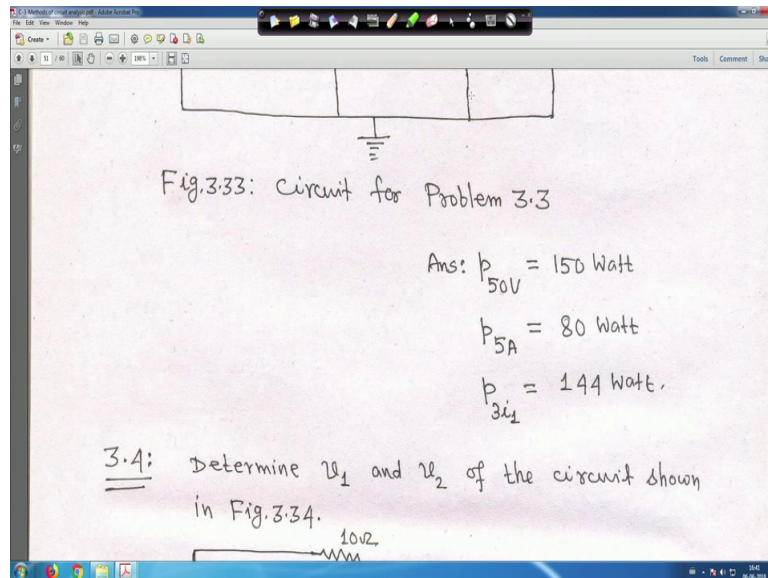 C-3-Methods of circuit analysis.pdf - Adobe Acrobat Pro
File Edit View Window Help
Create
51 / 60
198%
Tools Comment
Fig.3.33: Circuit for Problem 3.3
Ans: p50V = 150 Watt
p5A = 80 Watt
p3i1 = 144 Watt.
3.4: Determine v1 and v2 of the circuit shown
in Fig.3.34.
10Ω
16:41